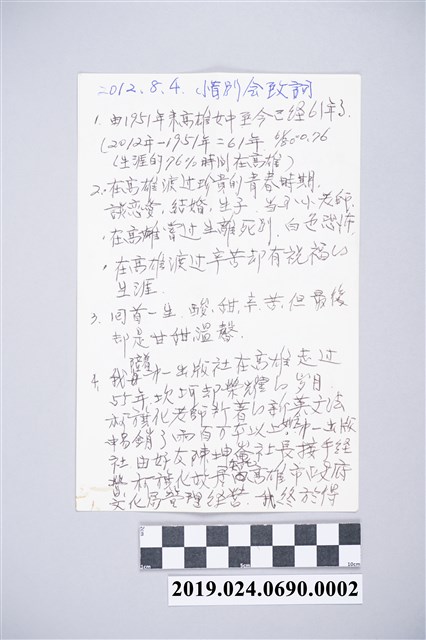 2012.8.4. 惜別会致詞
1. 由1951年来高雄女中至今已経61年了
(2012年-1951年=61年 61/80=0.76
(生涯的76%時間在高雄)
2. 在高雄渡过珍貴的青春時期.
談恋愛, 結婚, 生子. 当了小老師.
・在高雄嘗过生離死別. 白色恐怖.
・在高雄渡过辛苦却有祝福的
生涯.
3. 回首一生. 酸, 甜, 辛. 苦, 但最後
却是甘甜. 溫馨.
4. 我與第一出版社在高雄走过
55年, 坎坷却榮耀的岁月
柯旗化老師新著的新英文法
暢銷了兩百万本以上. 第一出版
社由好友陳坤崙社長接手経
営. 柯旗化故居由高雄市政府
文化局管理経営. 我終於得
cm
5cm
10cm
2019.024.0690.0002